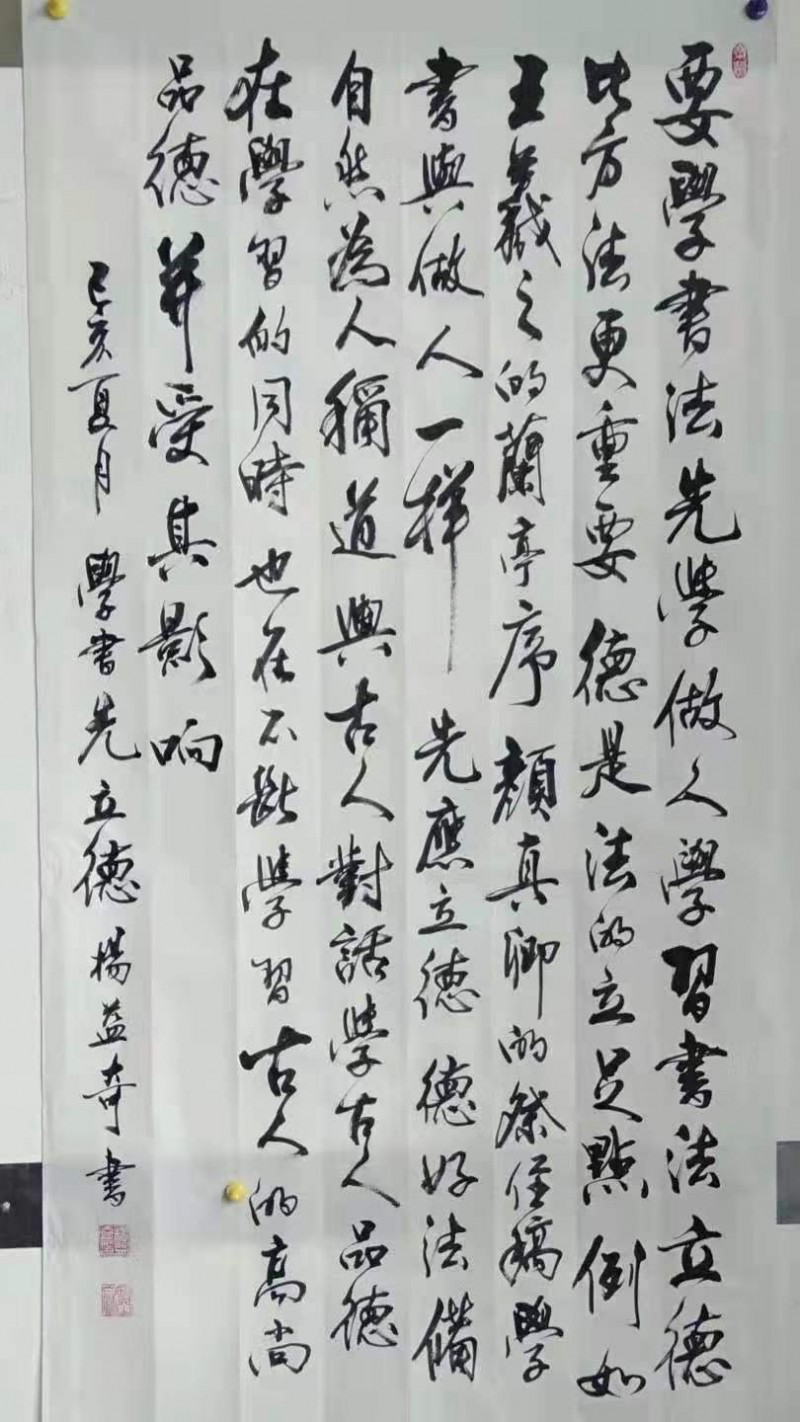 要學書法先學做人學習書法立德
比方法更重要德是法的立足點倒如
王羲之的蘭亭序顏真卿的祭侄稿學
書與做人一样先應立德德好法備
自然為人稱道與古人對話學古人品德
在學習的同時也在不斷學習古人的高尚
品德并受其影响
己亥夏月學書先立德楊益奇書